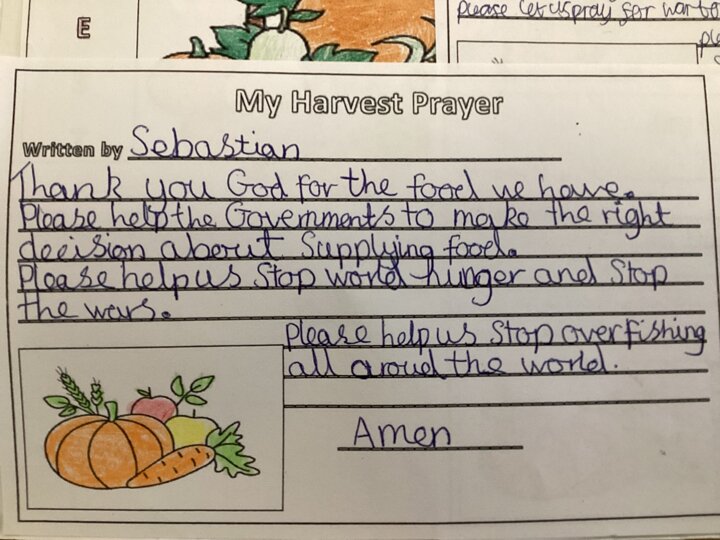 E
please let us pray for
My Harvest Prayer
Written by Sebastian
Thank you God for the food we have.
Please help the Governments to make the right
decision about Supplying food.
Please help us Stop world hunger and Stop
the wars.
Please help us Stop overfishing
all aroud the world.
Amen